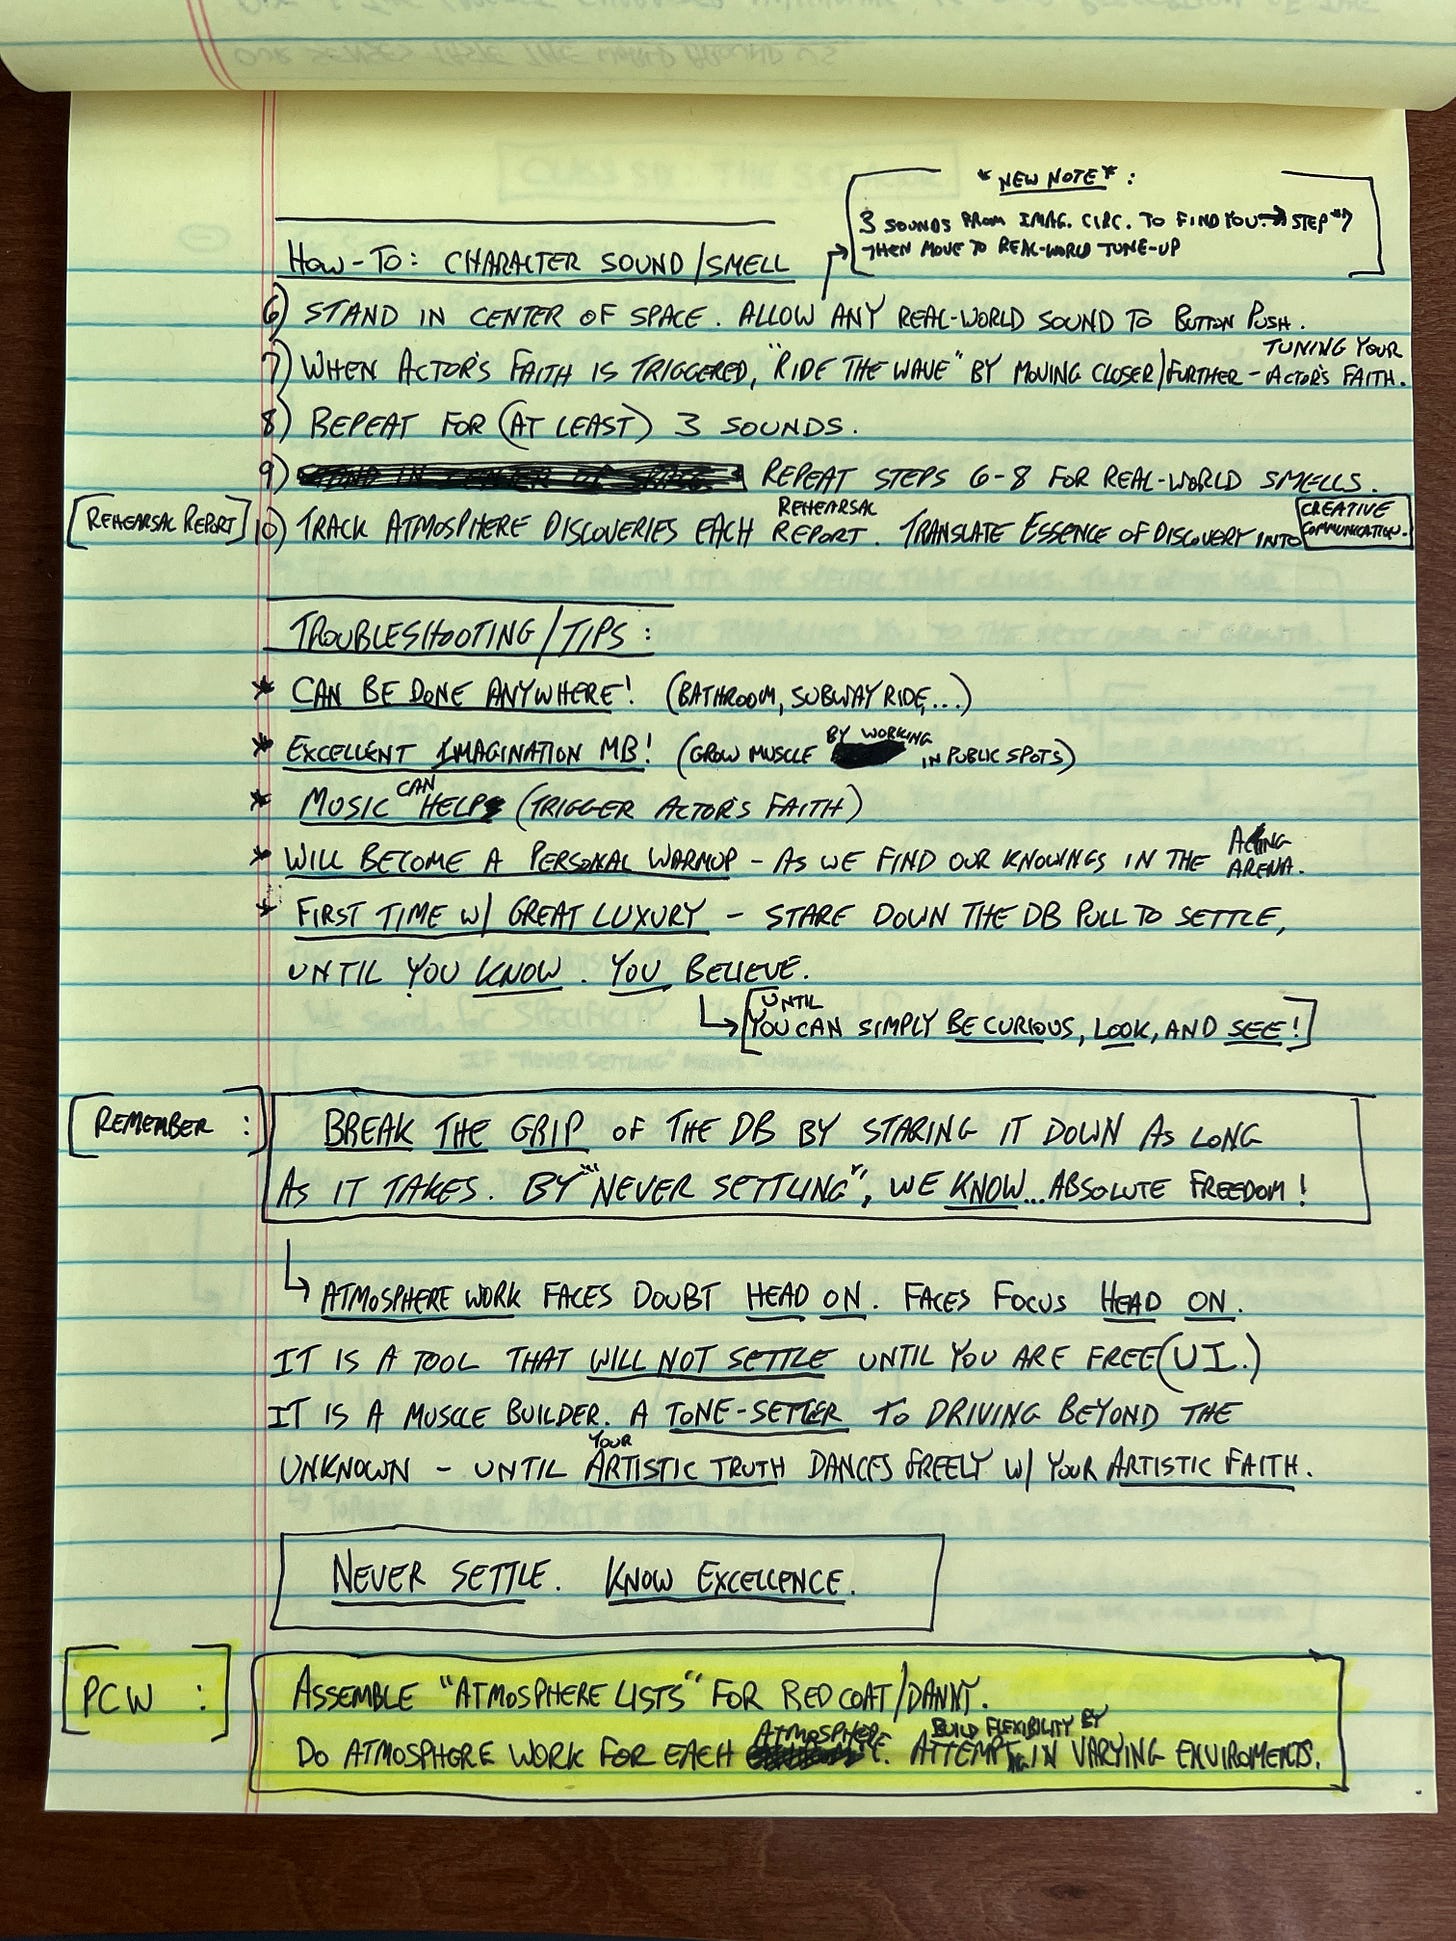 * NEW NOTE * :
3 SOUNDS FROM IMAG. CIRC. TO FIND YOU. → STEP #7
THEN MOVE TO REAL-WORLD TUNE-UP
HOW-TO: CHARACTER SOUND/SMELL
6) STAND IN CENTER OF SPACE. ALLOW ANY REAL-WORLD SOUND TO BUTTON PUSH.
7) WHEN ACTOR'S FAITH IS TRIGGERED, "RIDE THE WAVE" BY MOVING CLOSER/FURTHER - TUNING YOUR ACTOR'S FAITH.
8) REPEAT FOR (AT LEAST) 3 SOUNDS.
9) REPEAT STEPS 6-8 FOR REAL-WORLD SMELLS.
[REHEARSAL REPORT] 10) TRACK ATMOSPHERE DISCOVERIES EACH REHEARSAL REPORT. TRANSLATE ESSENCE OF DISCOVERY INTO CREATIVE COMMUNICATION.
TROUBLESHOOTING/TIPS:
* CAN BE DONE ANYWHERE! (BATHROOM, SUBWAY RIDE,...)
* EXCELLENT IMAGINATION MB! (GROW MUSCLE BY WORKING IN PUBLIC SPOTS)
* MUSIC CAN HELP (TRIGGER ACTOR'S FAITH)
* WILL BECOME A PERSONAL WARMUP - AS WE FIND OUR KNOWINGS IN THE ACTING ARENA.
* FIRST TIME W/ GREAT LUXURY - STARE DOWN THE DB PULL TO SETTLE,
UNTIL YOU KNOW. YOU BELIEVE.
↳ [UNTIL YOU CAN SIMPLY BE CURIOUS, LOOK, AND SEE!]
[REMEMBER :] BREAK THE GRIP OF THE DB BY STARING IT DOWN AS LONG
AS IT TAKES. BY "NEVER SETTLING", WE KNOW... ABSOLUTE FREEDOM!
↳ ATMOSPHERE WORK FACES DOUBT HEAD ON. FACES FOCUS HEAD ON.
IT IS A TOOL THAT WILL NOT SETTLE UNTIL YOU ARE FREE (U I.)
IT IS A MUSCLE BUILDER. A TONE-SETTER TO DRIVING BEYOND THE
UNKNOWN - UNTIL YOUR ARTISTIC TRUTH DANCES FREELY W/ YOUR ARTISTIC FAITH.
NEVER SETTLE. KNOW EXCELLENCE.
[PCW :] ASSEMBLE "ATMOSPHERE LISTS" FOR RED COAT/DANNY.
DO ATMOSPHERE WORK FOR EACH ATMOSPHERE. BUILD FLEXIBILITY BY ATTEMPTING IN VARYING ENVIROMENTS.